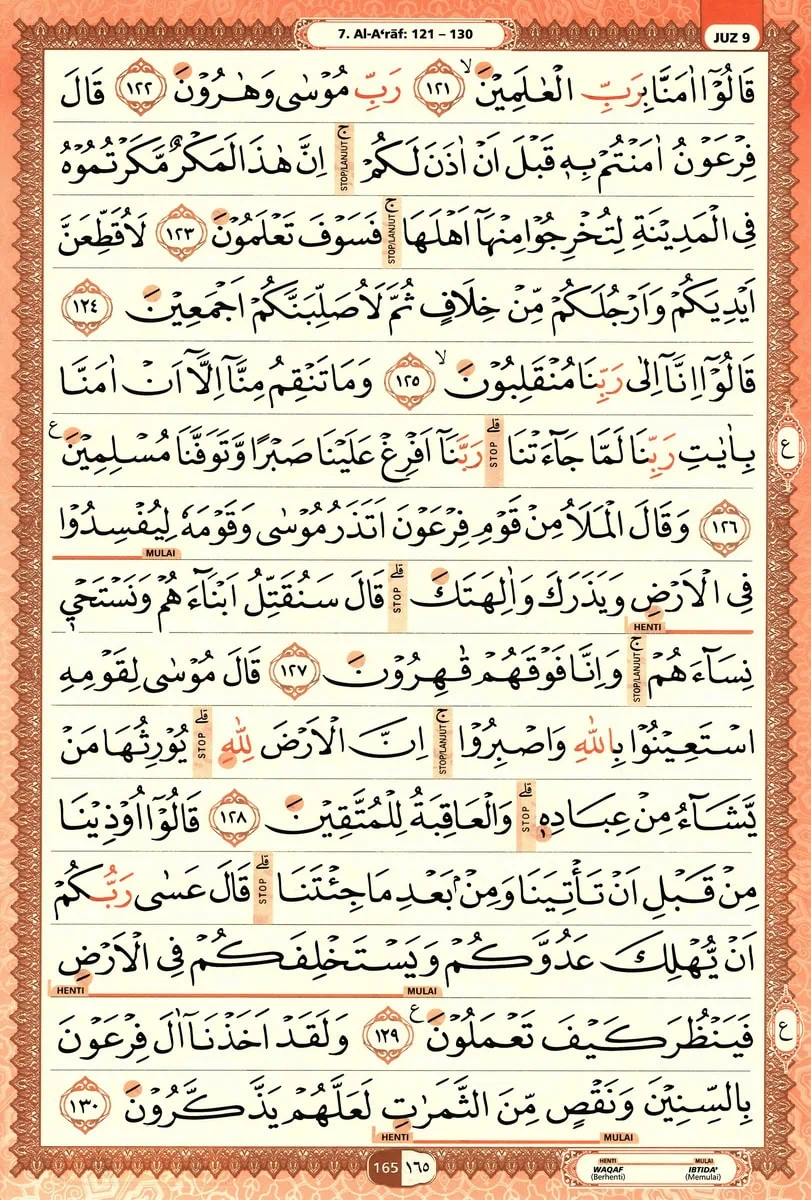 7. Al-A‘rāf: 121 – 130
JUZ 9
قَالُوْٓا اٰمَنَّا بِرَبِّ الْعٰلَمِيْنَۙ ١٢١ رَبِّ مُوْسٰى وَهٰرُوْنَ ١٢٢ قَالَ
فِرْعَوْنُ اٰمَنْتُمْ بِهٖ قَبْلَ اَنْ اٰذَنَ لَكُمْۚ STOP/LANJUT اِنَّ هٰذَا لَمَكْرٌ مَّكَرْتُمُوْهُ
فِى الْمَدِيْنَةِ لِتُخْرِجُوْا مِنْهَآ اَهْلَهَاۚ STOP/LANJUT فَسَوْفَ تَعْلَمُوْنَ ١٢٣ لَاُقَطِّعَنَّ
اَيْدِيَكُمْ وَاَرْجُلَكُمْ مِّنْ خِلَافٍ ثُمَّ لَاُصَلِّبَنَّكُمْ اَجْمَعِيْنَ ١٢٤
قَالُوْٓا اِنَّآ اِلٰى رَبِّنَا مُنْقَلِبُوْنَۙ ١٢٥ وَمَا تَنْقِمُ مِنَّآ اِلَّآ اَنْ اٰمَنَّا
بِاٰيٰتِ رَبِّنَا لَمَّا جَاۤءَتْنَاۗ STOP رَبَّنَآ اَفْرِغْ عَلَيْنَا صَبْرًا وَّتَوَفَّنَا مُسْلِمِيْنَ ع
١٢٦ وَقَالَ الْمَلَاُ مِنْ قَوْمِ فِرْعَوْنَ اَتَذَرُ مُوْسٰى وَقَوْمَهٗ لِيُفْسِدُوْا
MULAI
فِى الْاَرْضِ وَيَذَرَكَ وَاٰلِهَتَكَۗ STOP قَالَ سَنُقَتِّلُ اَبْنَاۤءَهُمْ وَنَسْتَحْيٖ
HENTI
نِسَاۤءَهُمْۚ STOP/LANJUT وَاِنَّا فَوْقَهُمْ قٰهِرُوْنَ ١٢٧ قَالَ مُوْسٰى لِقَوْمِهِ
اسْتَعِيْنُوْا بِاللّٰهِ وَاصْبِرُوْاۚ STOP/LANJUT اِنَّ الْاَرْضَ لِلّٰهِۗ STOP يُوْرِثُهَا مَنْ
يَّشَاۤءُ مِنْ عِبَادِهٖۗ STOP وَالْعَاقِبَةُ لِلْمُتَّقِيْنَ ١٢٨ قَالُوْٓا اُوْذِيْنَا
مِنْ قَبْلِ اَنْ تَأْتِيَنَا وَمِنْۢ بَعْدِ مَا جِئْتَنَاۗ STOP قَالَ عَسٰى رَبُّكُمْ
اَنْ يُّهْلِكَ عَدُوَّكُمْ وَيَسْتَخْلِفَكُمْ فِى الْاَرْضِ
MULAI HENTI
فَيَنْظُرَ كَيْفَ تَعْمَلُوْنَ ع ١٢٩ وَلَقَدْ اَخَذْنَآ اٰلَ فِرْعَوْنَ
بِالسِّنِيْنَ وَنَقْصٍ مِّنَ الثَّمَرٰتِ لَعَلَّهُمْ يَذَّكَّرُوْنَ ١٣٠
MULAI HENTI
ع
ع
165 ١٦٥
HENTI MULAI
WAQAF IBTIDA’
(Berhenti) (Memulai)